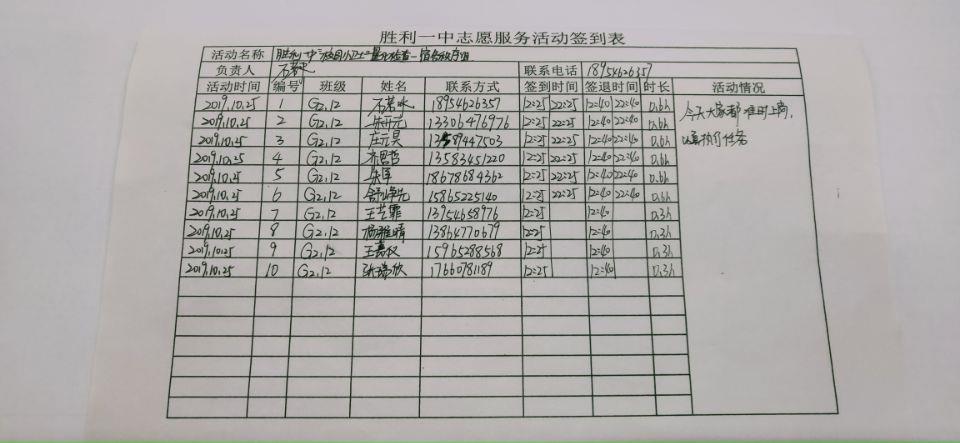 胜利一中志愿服务活动签到表
活动名称 胜利一中"校园小卫士"量化检查-宿舍秩序组
负责人 石若水 联系电话 18954626357
活动时间 编号 班级 姓名 联系方式 签到时间 签退时间 时长 活动情况
2019.10.25 1 G2.12 石若水 18954626357 12:25 22:25 12:40 22:40 0.6h 今天大家都准时上岗,
2019.10.25 2 G2.12 13306476976 12:25 22:25 12:40 22:40 0.6h 认真执行任务
2019.10.25 3 G2.12 庄元昊 447503 12:25 22:25 12:40 22:40 0.6h
2019.10.25 4 G2.12 13583451220 12:25 22:25 12:40 22:40 0.6h
2019.10.25 5 G2.12 18678684362 12:25 22:25 12:40 22:40 0.6h
2019.10.25 6 G2.12 15865225140 12:25 22:25 12:40 22:40 0.6h
2019.10.25 7 G2.12 王艺霏 13954658976 12:25 12:40 0.3h
2019.10.25 8 G2.12 杨雅晴 13864770679 12:25 12:40 0.3h
2019.10.25 9 G2.12 王嘉 15965288568 12:25 12:40 0.3h
2019.10.25 10 G2.12 张瑞欣 1766078189 12:25 12:40 0.3h